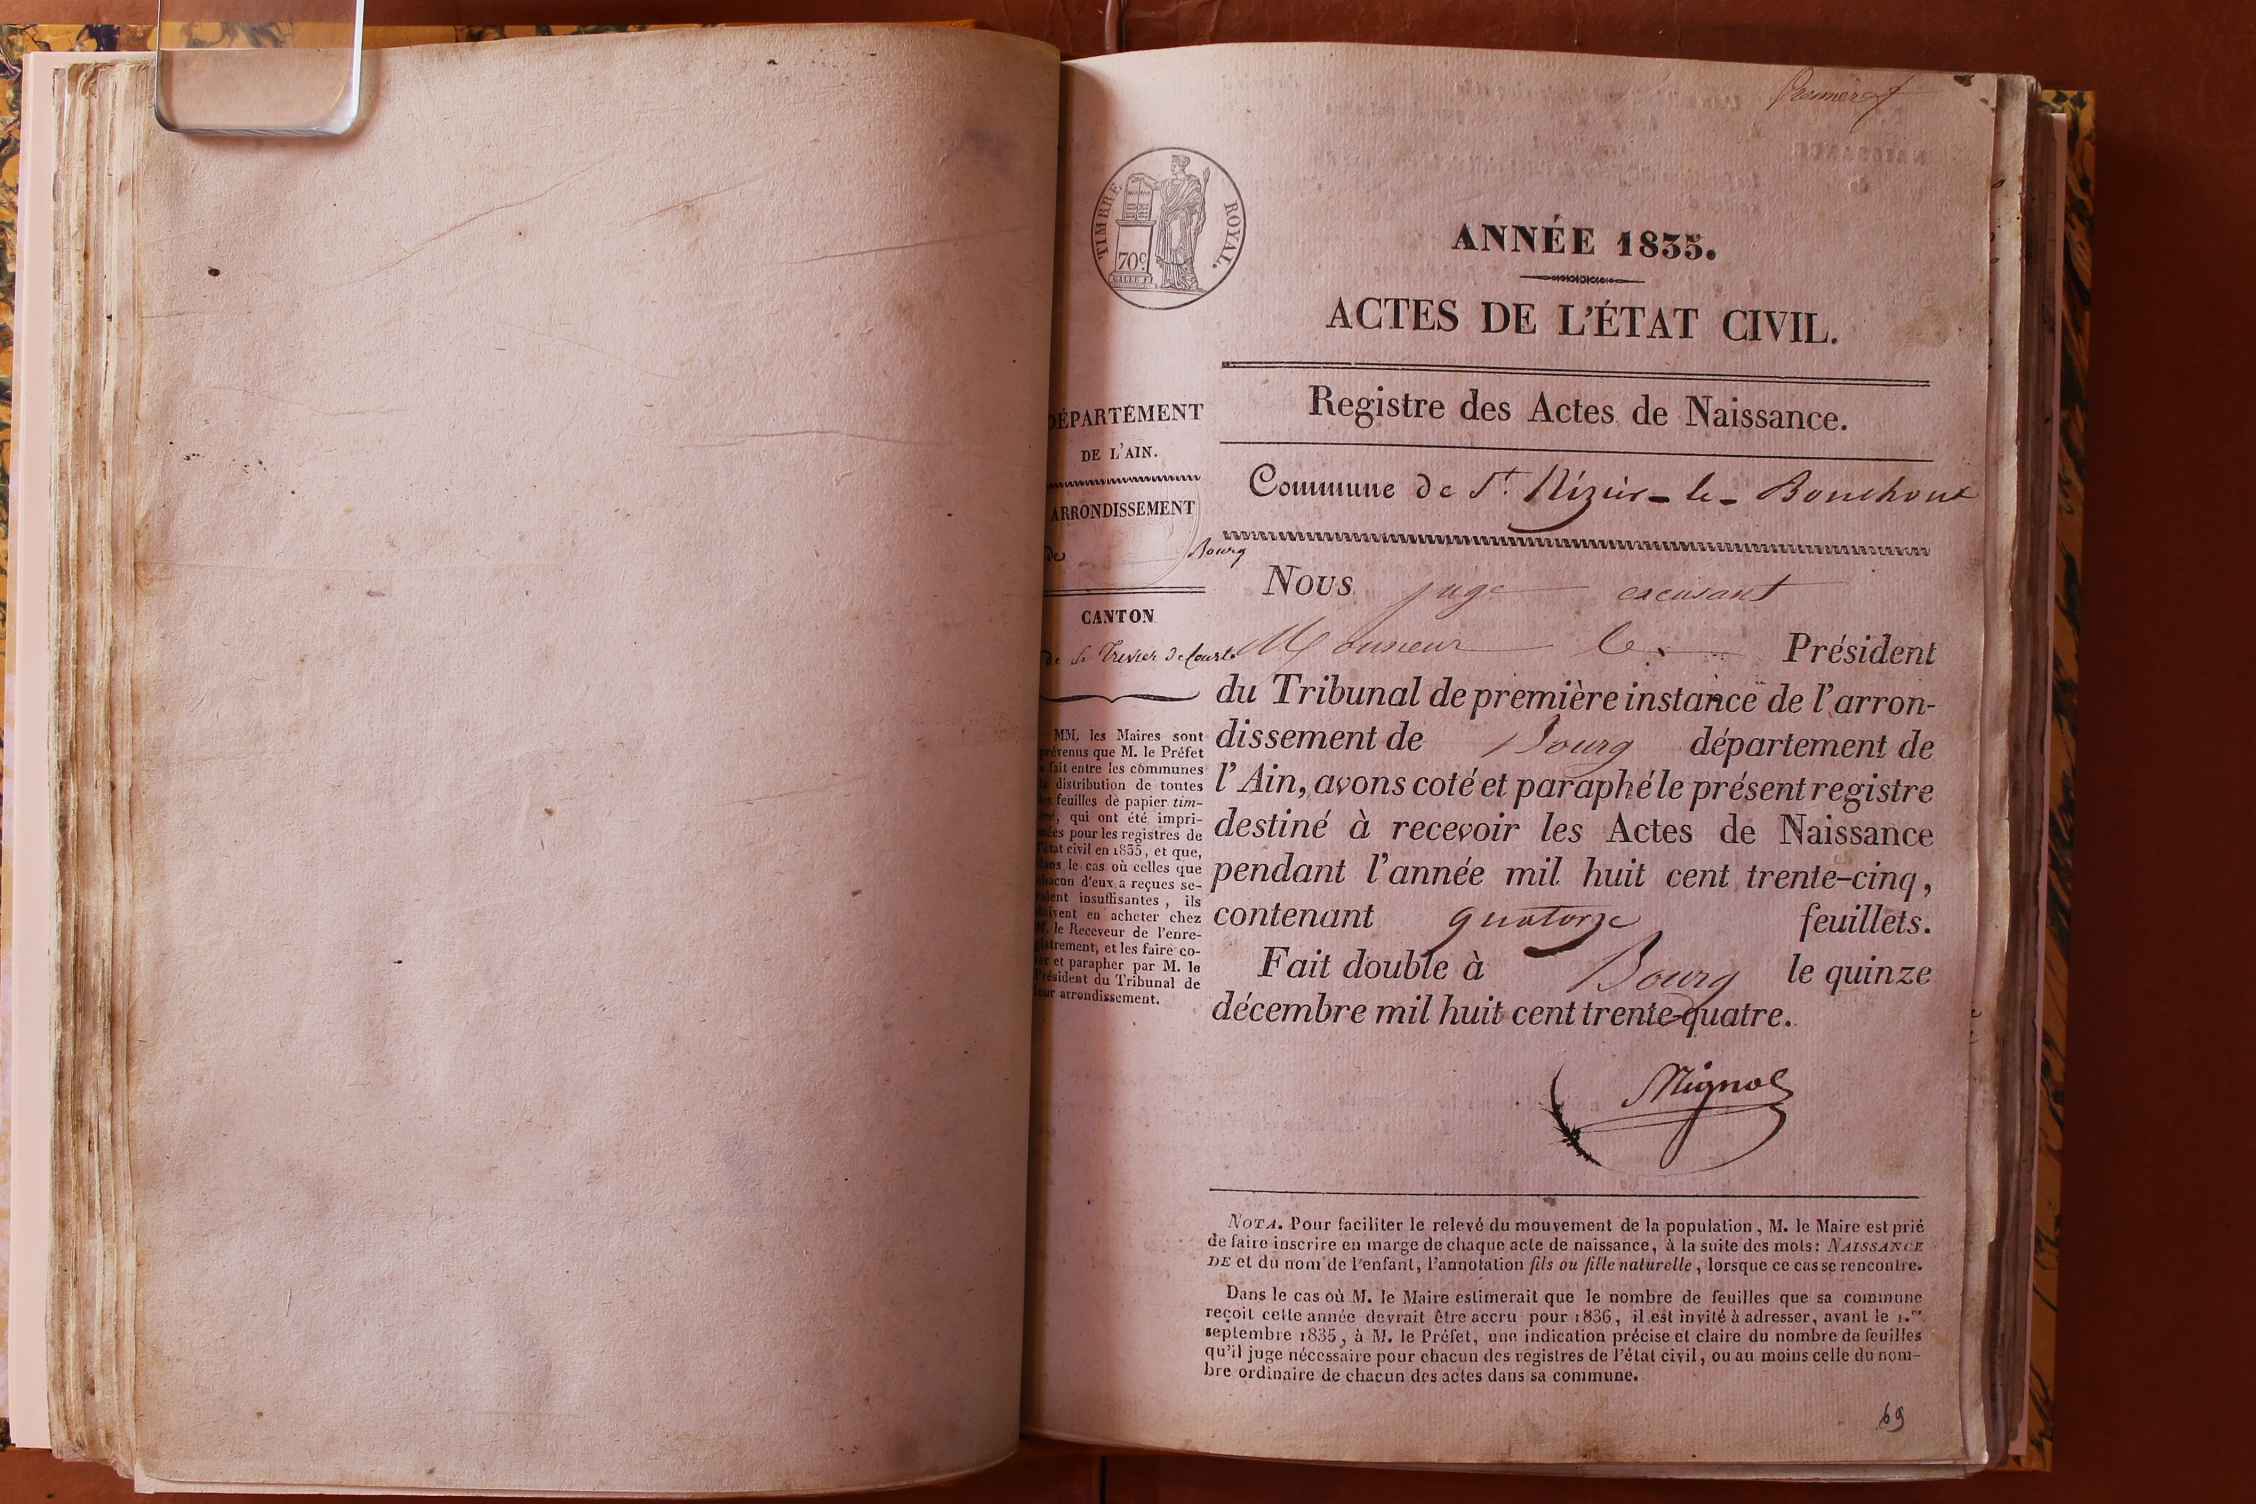 TIMBRE ROYAL.
70c
ANNÉE 1835.
ACTES DE L'ÉTAT CIVIL.
Registre des Actes de Naissance.
Commune de St. Nizier-le-Bouchoux
DÉPARTEMENT
DE L'AIN.
ARRONDISSEMENT
de Bourg
CANTON
de St Trivier de Courtes
MM. les Maires sont
prévenus que M. le Préfet
a fait entre les communes
la distribution de toutes
les feuilles de papier tim-
bré, qui ont été impri-
mées pour les registres de
l'état civil en 1835, et que,
dans le cas où celles que
chacon d'eux a reçues se-
raient insuffisantes, ils
doivent en acheter chez
M. le Receveur de l'enre-
gistrement, et les faire co-
ter et parapher par M. le
Président du Tribunal de
leur arrondissement.
Nous juge excusant
Monsieur le Président
du Tribunal de première instance de l'arron-
dissement de Bourg département de
l'Ain, avons coté et paraphé le présent registre
destiné à recevoir les Actes de Naissance
pendant l'année mil huit cent trente-cinq,
contenant quatorze feuillets.
Fait double à Bourg le quinze
décembre mil huit cent trente-quatre.
Mignot
NOTA. Pour faciliter le relevé du mouvement de la population, M. le Maire est prié
de faire inscrire en marge de chaque acte de naissance, à la suite des mots: NAISSANCE
DE et du nom de l'enfant, l'annotation fils ou fille naturelle, lorsque ce cas se rencontre.
Dans le cas où M. le Maire estimerait que le nombre de feuilles que sa commune
reçoit cette année devrait être accru pour 1836, il est invité à adresser, avant le 1.er
septembre 1835, à M. le Préfet, une indication précise et claire du nombre de feuilles
qu'il juge nécessaire pour chacun des registres de l'état civil, ou au moins celle du nom-
bre ordinaire de chacun des actes dans sa commune.
69